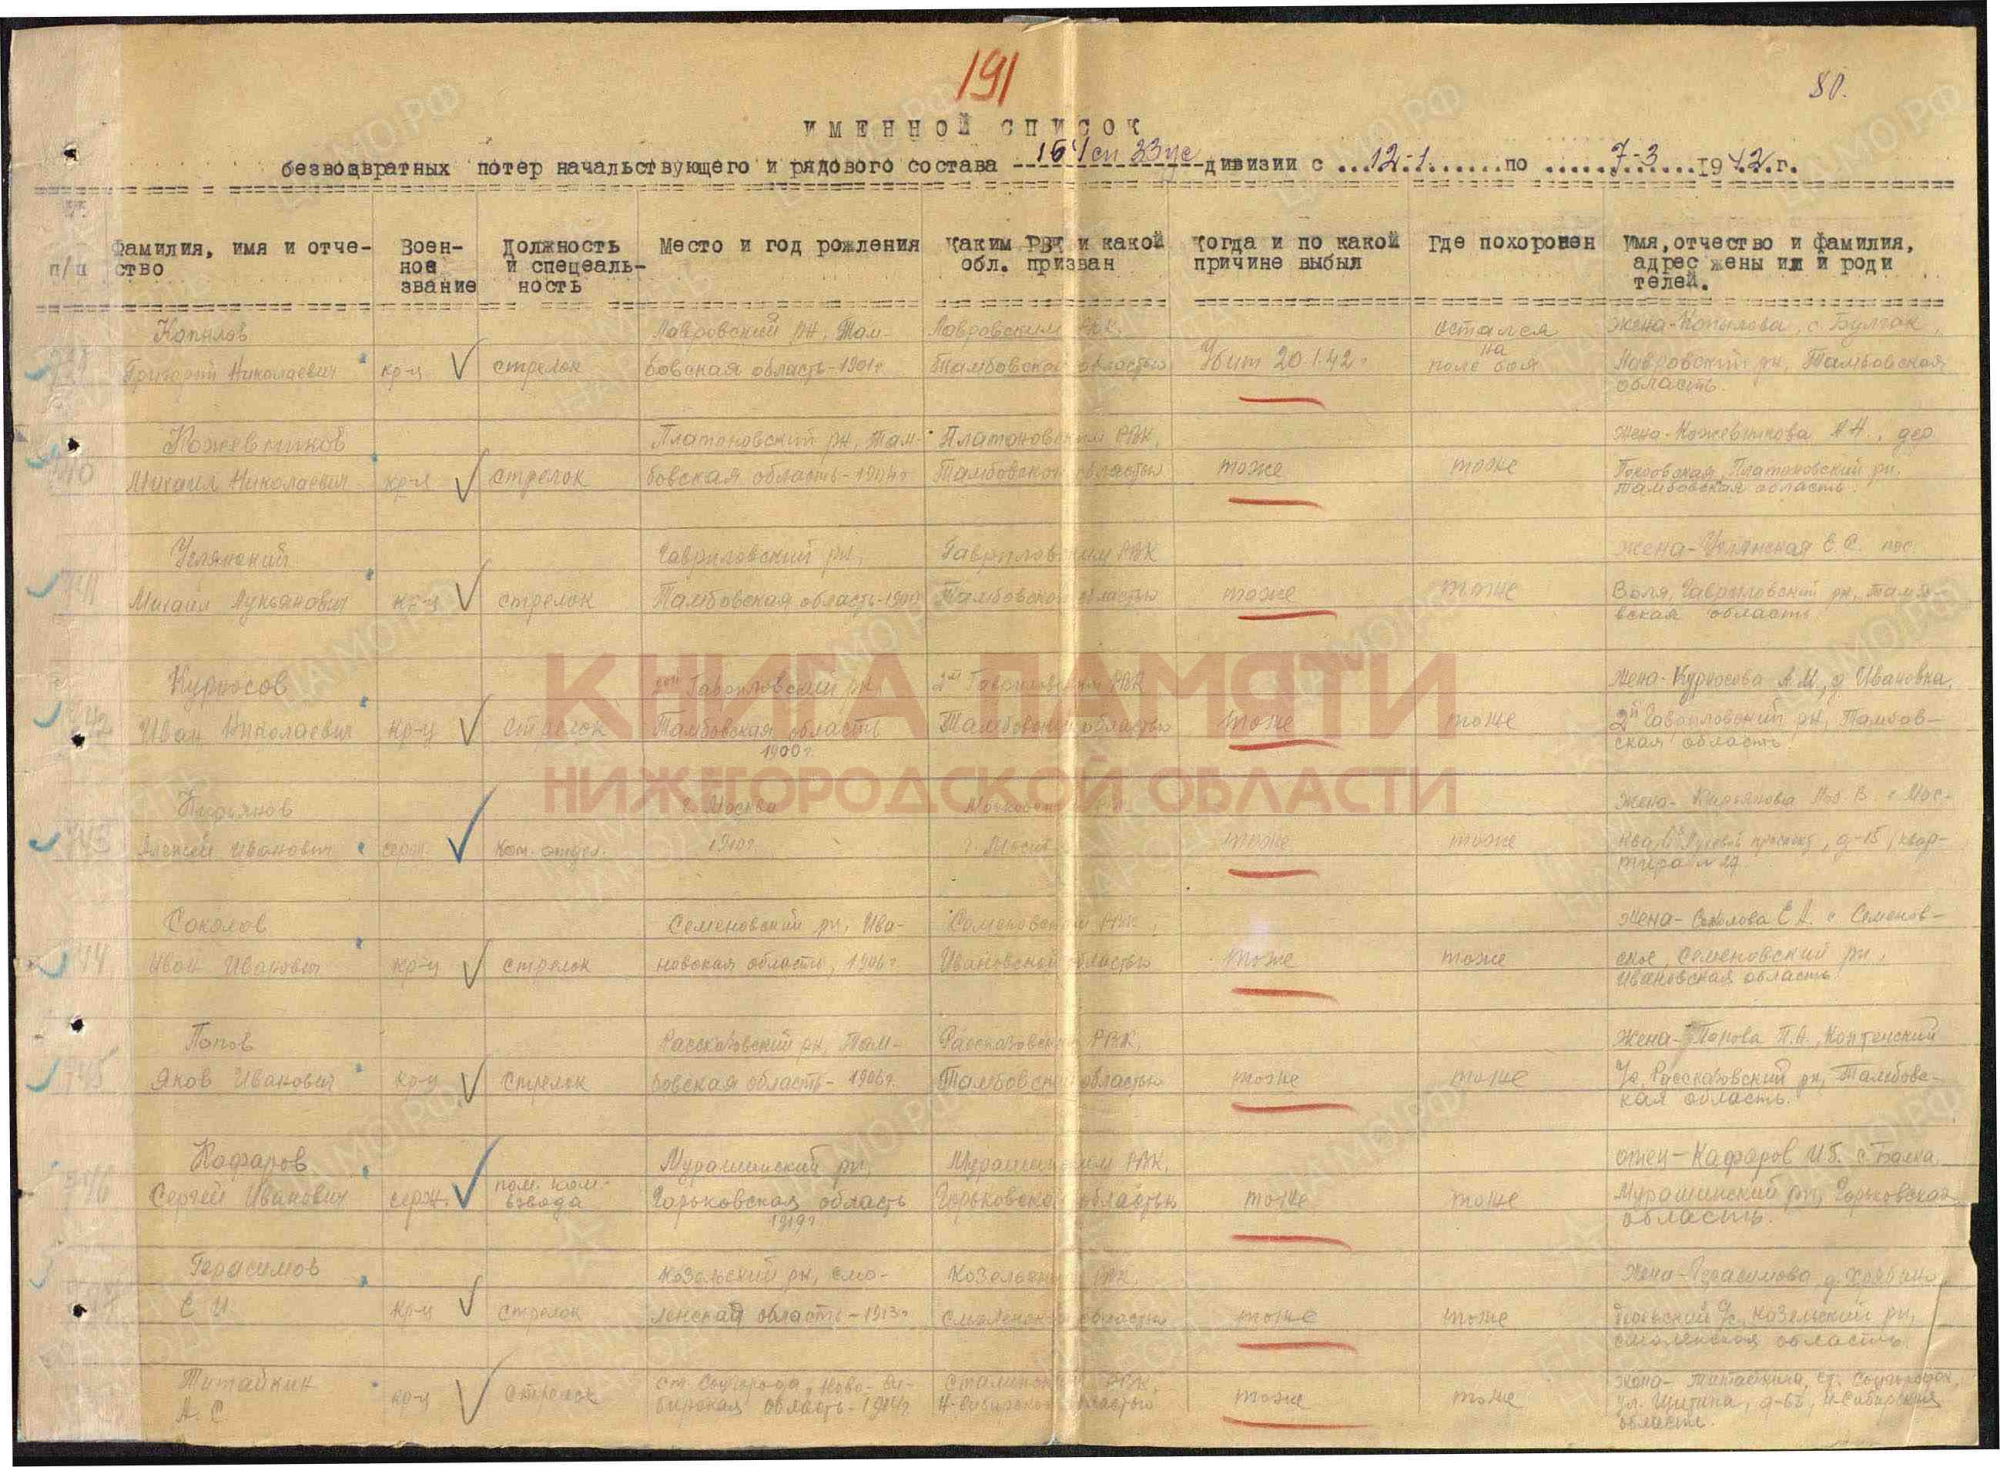 191
80.
ИМЕННОЙ СПИСОК
безвозвратных потер начальствующего и рядового состава 164 сп 33 дивизии с ...12-1.......по .....7-3....1942.г.
п/п
Фамилия, имя и отче-
ство
Воен-
ное
звание
Должность
и спецеаль-
ность
Место и год рождения
Каким РВК и какой
обл. призван
Когда и по какой
причине выбыл
Где похоронен
Имя, отчество и фамилия,
адрес жены или роди
телей.
Копылов
Григорий Николаевич
кр-ц
стрелок
Лавровский рн, Там-
бовская область-1901г
Лавровским РВК,
Тамбовской областью
Убит 20 1 42г
остался
на
поле боя
жена-Копылова, с. Булгак,
Лавровский рн, Тамбовская
область.
Кожевников
Михаил Николаевич
кр-ц
стрелок
Платоновский рн, Там-
бовская область-1904г
Платоновским РВК,
Тамбовской областью
тоже
тоже
жена-Кожевникова А.А., дер
Покровская, Платоновский рн,
Тамбовская область.
Углянский
Михаил Лукьянович
кр-ц
стрелок
Гавриловский рн,
Тамбовская область-1900
Гавриловским РВК
Тамбовской областью
тоже
тоже
жена-Углянская Е.С. пос.
Воля, Гавриловский рн, Тамб-
вская область
742
Курносов
Иван Николаевич
кр-ц
стрелок
2ой Гавриловский рн,
Тамбовская область
1900г.
2м Гавриловским РВК
Тамбовской областью
тоже
тоже
жена-Курносова А.М., д. Ивановка,
2й Гавриловский рн, Тамбов-
ская область.
743
Кирьянов
Алексей Иванович
серж.
Ком. отдел.
г. Москва
1910г.
Московским РВК
г. Москва
тоже
тоже
жена- Кирьянова В. г. Мос-
ква, проспект, д-15, квар-
тира № 29
744
Соколов
Иван Иванович
кр-ц
стрелок
Семеновский рн, Ива-
новская область, 1906г.
Семеновским РВК,
Ивановской областью
тоже
тоже
жена-Соколова Е.А. с. Семенов-
ское, Семеновский рн,
Ивановская область
745
Попов
Яков Иванович
кр-ц
стрелок
Рассказовский рн, Там-
бовская область- 1906г.
Рассказовским РВК,
Тамбовской областью
тоже
тоже
жена-Попова П.А., Коптенский
Ус, Рассказовский рн, Тамбовс-
кая область.
746
Кафаров
Сергей Иванович
серж.
пом. ком-
взвода
Мурашинский рн,
Горьковская область
1919г.
Мурашинским РВК,
Горьковской областью
тоже
тоже
отец-Кафаров И.Б. с.
Мурашинский рн, Горьковская
область.
Герасимов
С И
кр-ц
стрелок
Козельский рн, смо-
ленская область-1913г
Козельским РВК,
Смоленской областью
тоже
тоже
жена-Герасимова д.
Ус, Козельский рн,
смоленская область.
Титайкин
А. С.
кр-ц
стрелок
ст. Соцгорода, Ново-Си-
бирская область-1914г
Сталинским РВК,
Н-Сибирской областью
тоже
тоже
жена- Титайкина, ст. Соцгородок,
ул. Щитина, д-6б, Н-Сибирская
область.
КНИГА ПАМЯТИ
НИЖЕГОРОДСКОЙ ОБЛАСТИ